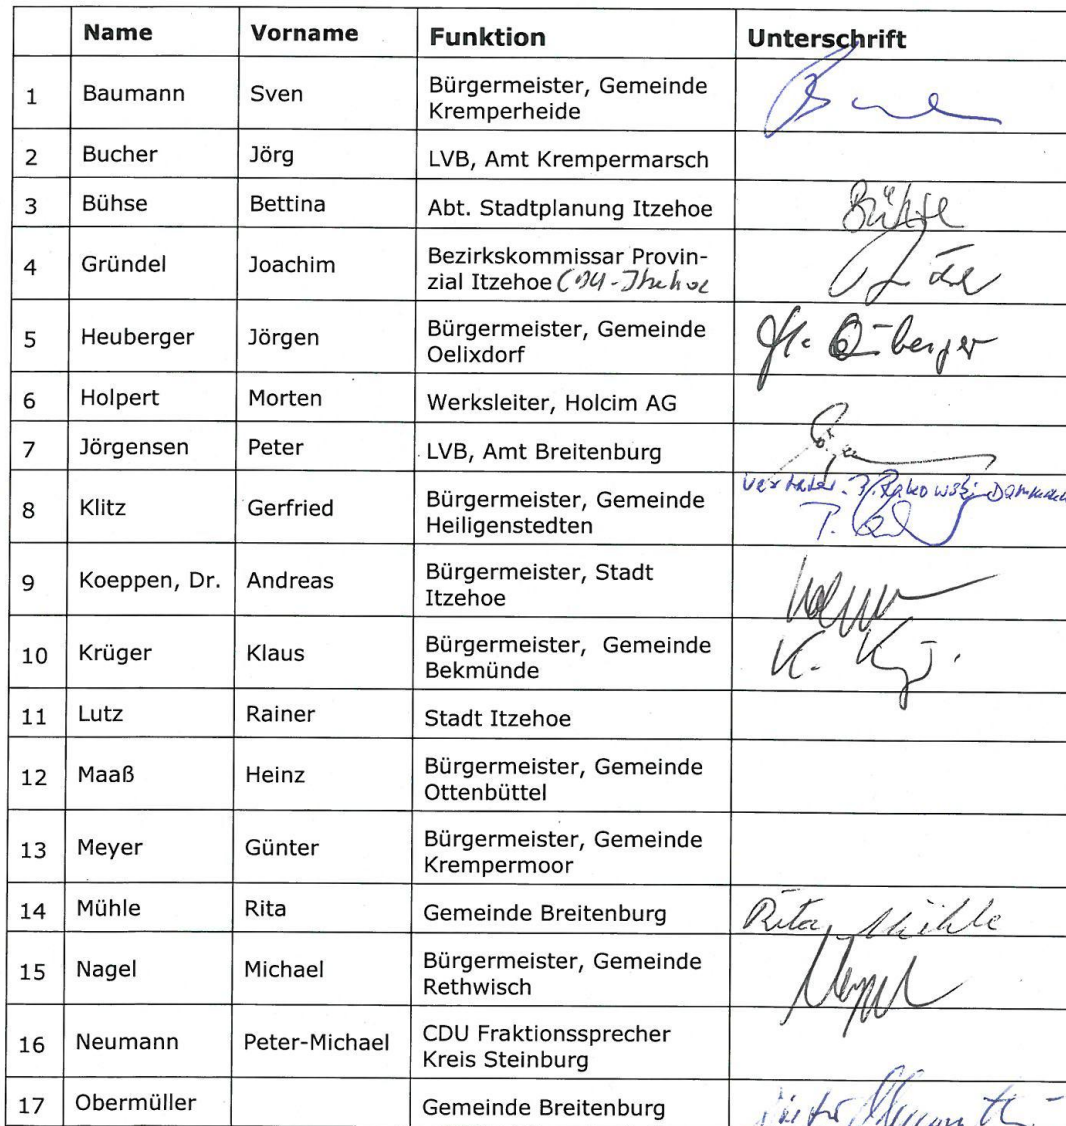 Name Vorname Funktion Unterschrift
1 Baumann Sven Bürgermeister, Gemeinde
Kremperheide
2 Bucher Jörg LVB, Amt Krempermarsch
3 Bühse Bettina Abt. Stadtplanung Itzehoe Bühse
4 Gründel Joachim Bezirkskommissar Provin-
zial Itzehoe CDU-Itzehoe
5 Heuberger Jörgen Bürgermeister, Gemeinde
Oelixdorf
6 Holpert Morten Werksleiter, Holcim AG
7 Jörgensen Peter LVB, Amt Breitenburg
8 Klitz Gerfried Bürgermeister, Gemeinde
Heiligenstedten
9 Koeppen, Dr. Andreas Bürgermeister, Stadt
Itzehoe
10 Krüger Klaus Bürgermeister, Gemeinde
Bekmünde
11 Lutz Rainer Stadt Itzehoe
12 Maaß Heinz Bürgermeister, Gemeinde
Ottenbüttel
13 Meyer Günter Bürgermeister, Gemeinde
Krempermoor
14 Mühle Rita Gemeinde Breitenburg Rita Mühle
15 Nagel Michael Bürgermeister, Gemeinde
Rethwisch
16 Neumann Peter-Michael CDU Fraktionssprecher
Kreis Steinburg
17 Obermüller Gemeinde Breitenburg